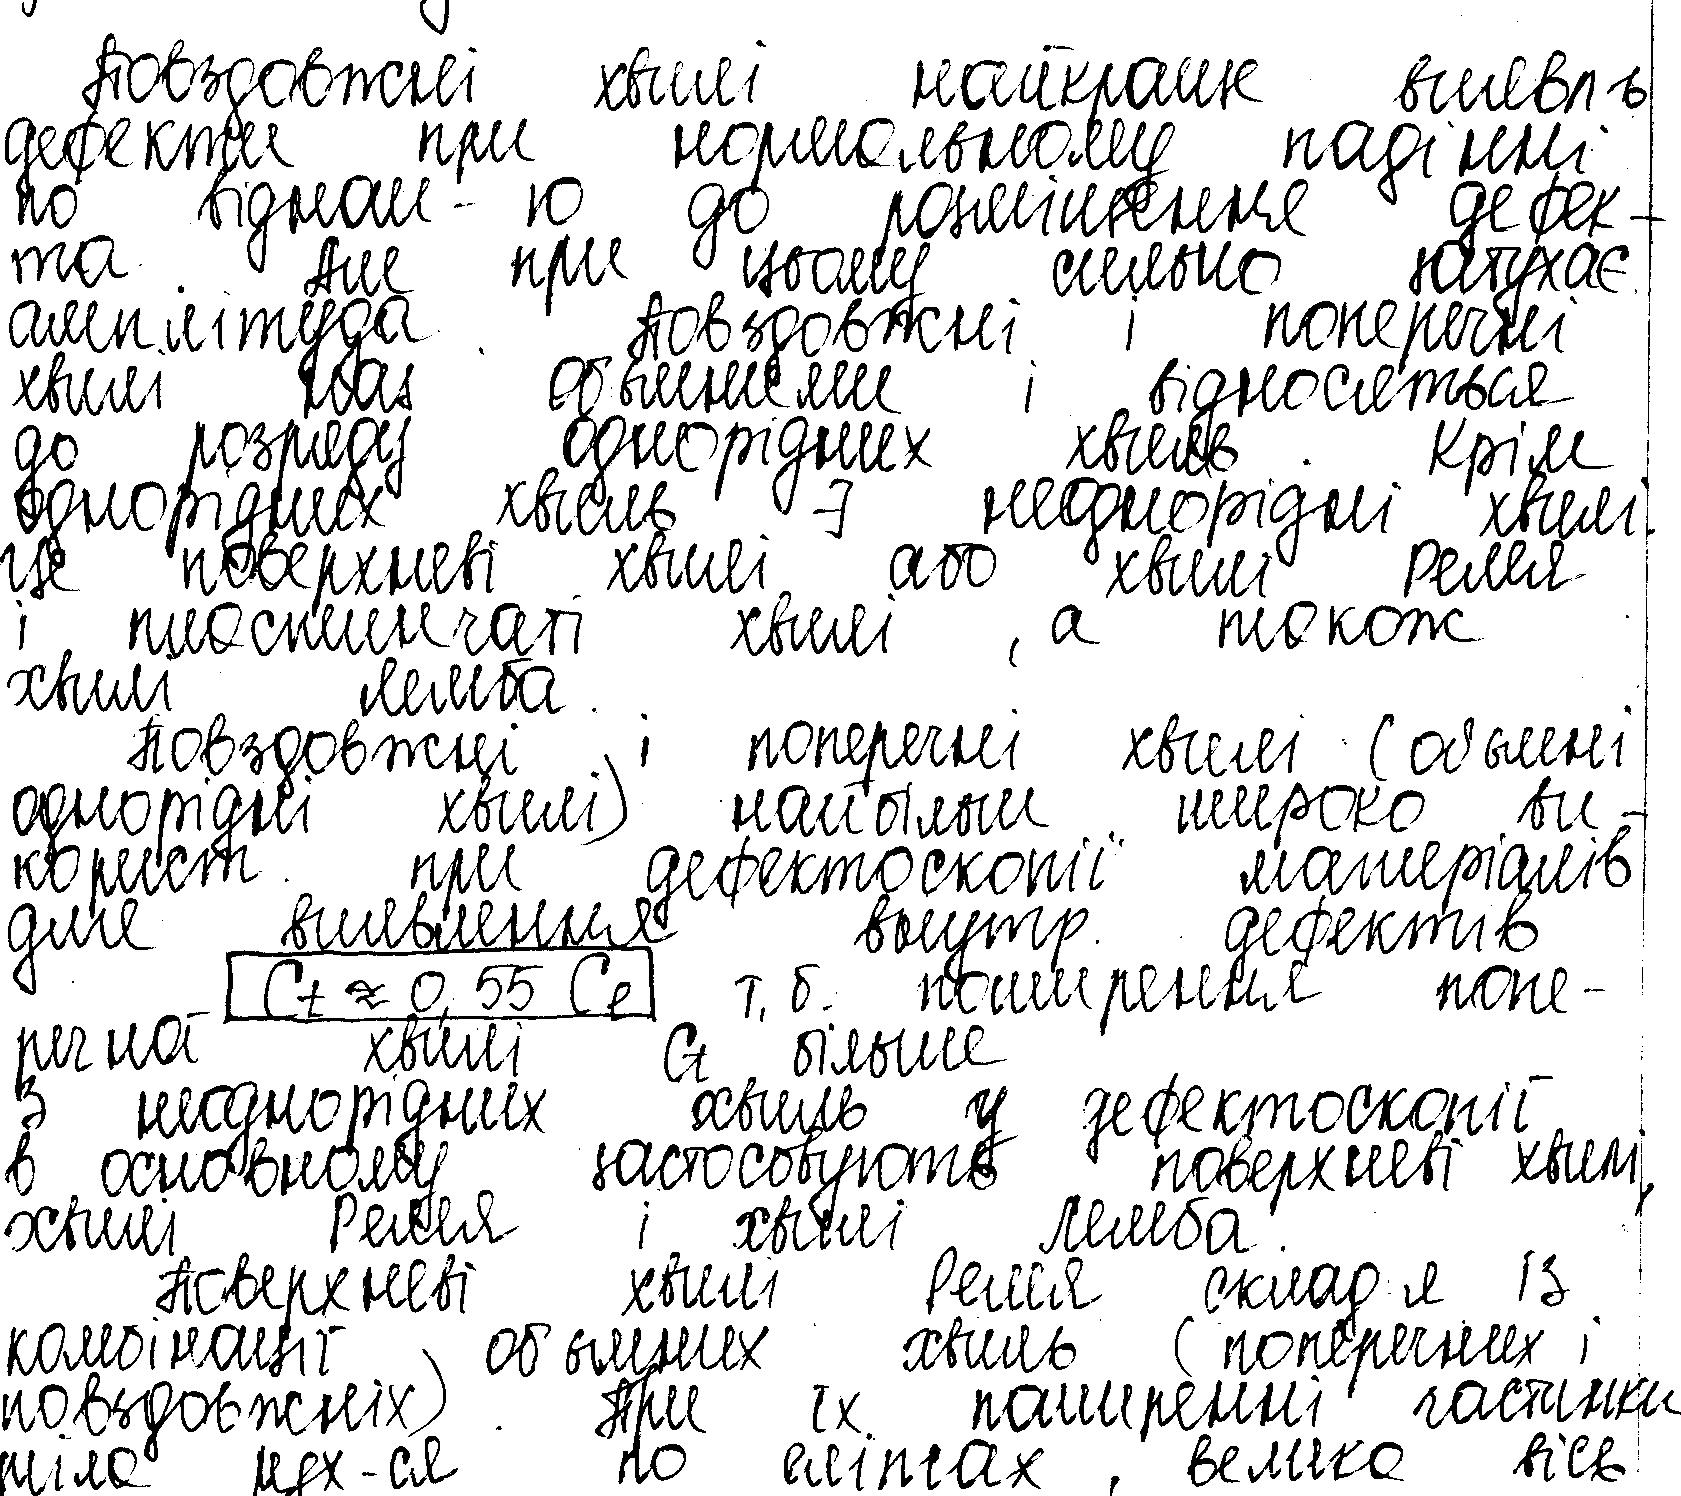 Повздовжні хвилі найкраще виявл-ь
дефекти при нормальному падінні
по віднош-ю до розміщення дефек-
та. Але при цьому сильно затухає
амплітуда. Повздовжні і поперечні
хвилі наз обьмними і відносяться
до розряду однорідних хвиль. Крім
однорідних хвиль ∃ неоднорідні хвилі.
Це поверхневі хвилі або хвилі Релея
і плоскинчаті хвилі, а також
хвилі Лемба.
Повздовжні і поперечні хвилі (обьмні
однорідні хвилі) найбільш широко ви-
корист. при дефектоскопії матеріалів
для виявлення внутр. дефектів
Ct ≈ 0,55 Cе т.б. поширення попе-
речна хвилі Ct більше
З неоднорідних хвиль у дефектоскопії
в основному застосовують поверхневі хвилі,
хвилі Релея і хвилі Лемба.
Поверхневі хвилі Релея склад-я із
комбінації обьмних хвиль (поперечних і
повздовжніх). При їх поширенні частинки
тіла рух-ся по еліпсах, велика вісь